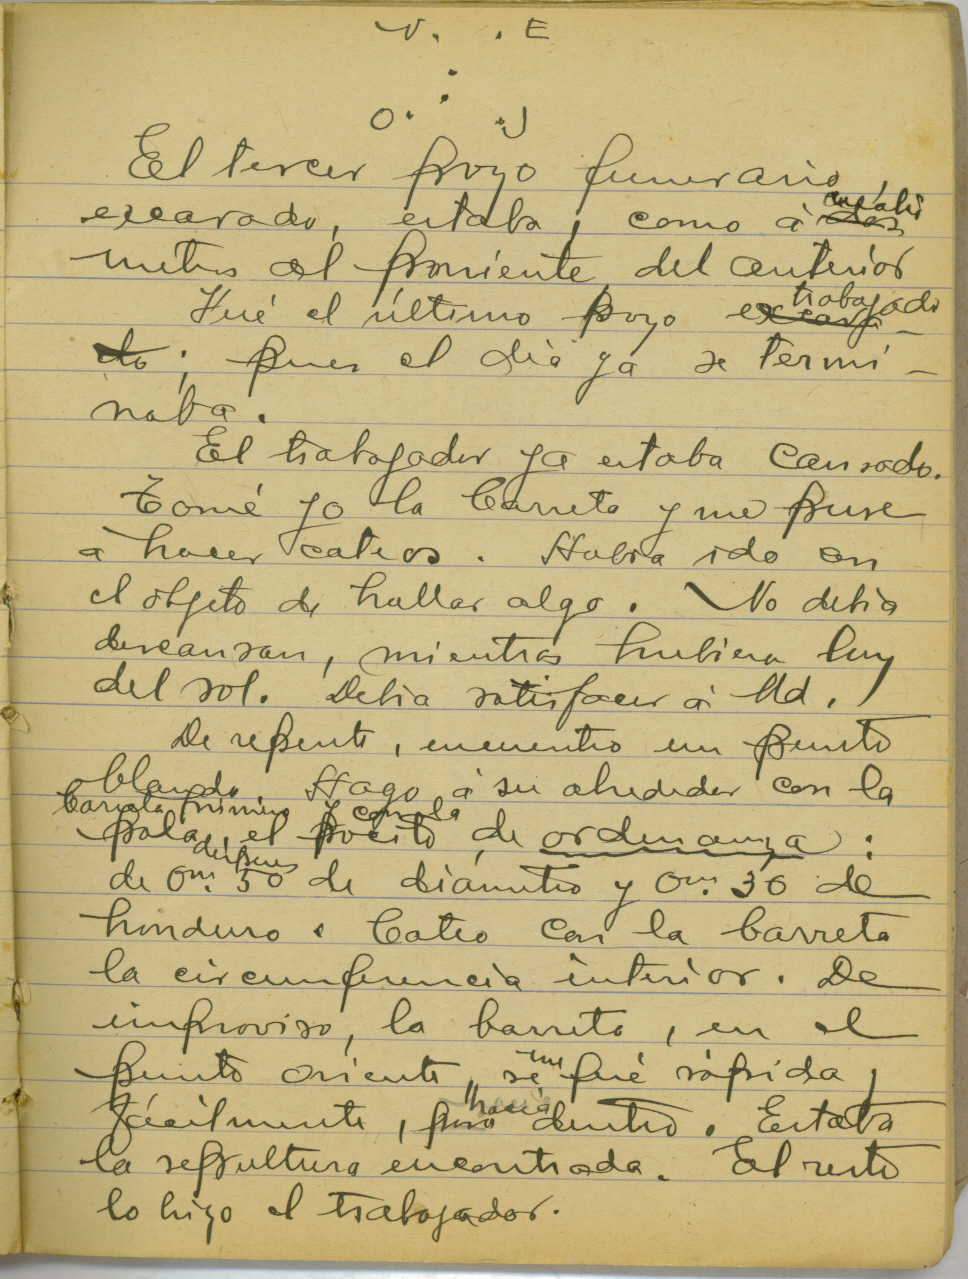 N. . E
O. . J
El tercer poyo funerario,
excavado, estaba, como á dos cuatro
metros al poniente del anterior
Fué el último poyo excava- trabajado
do; pues el día ya se termi-
naba.
El trabajador ya estaba cansado.
Tomé yo la barreta y me puse
á hacer cateos. Había ido con
el objeto de hallar algo. No debia
descansar, mientras hubiera luz
del sol. Debia satisfacer á Ud.
De repente, encuentro un punto
blando. Hago á su alrededor con la
barreta primero y con la
pala, el pocito de ordenanza:
después
de 0m. 50 de diámetro y 0m. 30 de
hondura. Cateo con la barreta
la circunferencia interior. De
improviso, la barreta, en el
punto oriente, se me fué rápida,
fácilmente, para hacia dentro. Estaba
la sepultura encontrada. El resto
lo hizo el trabajador.